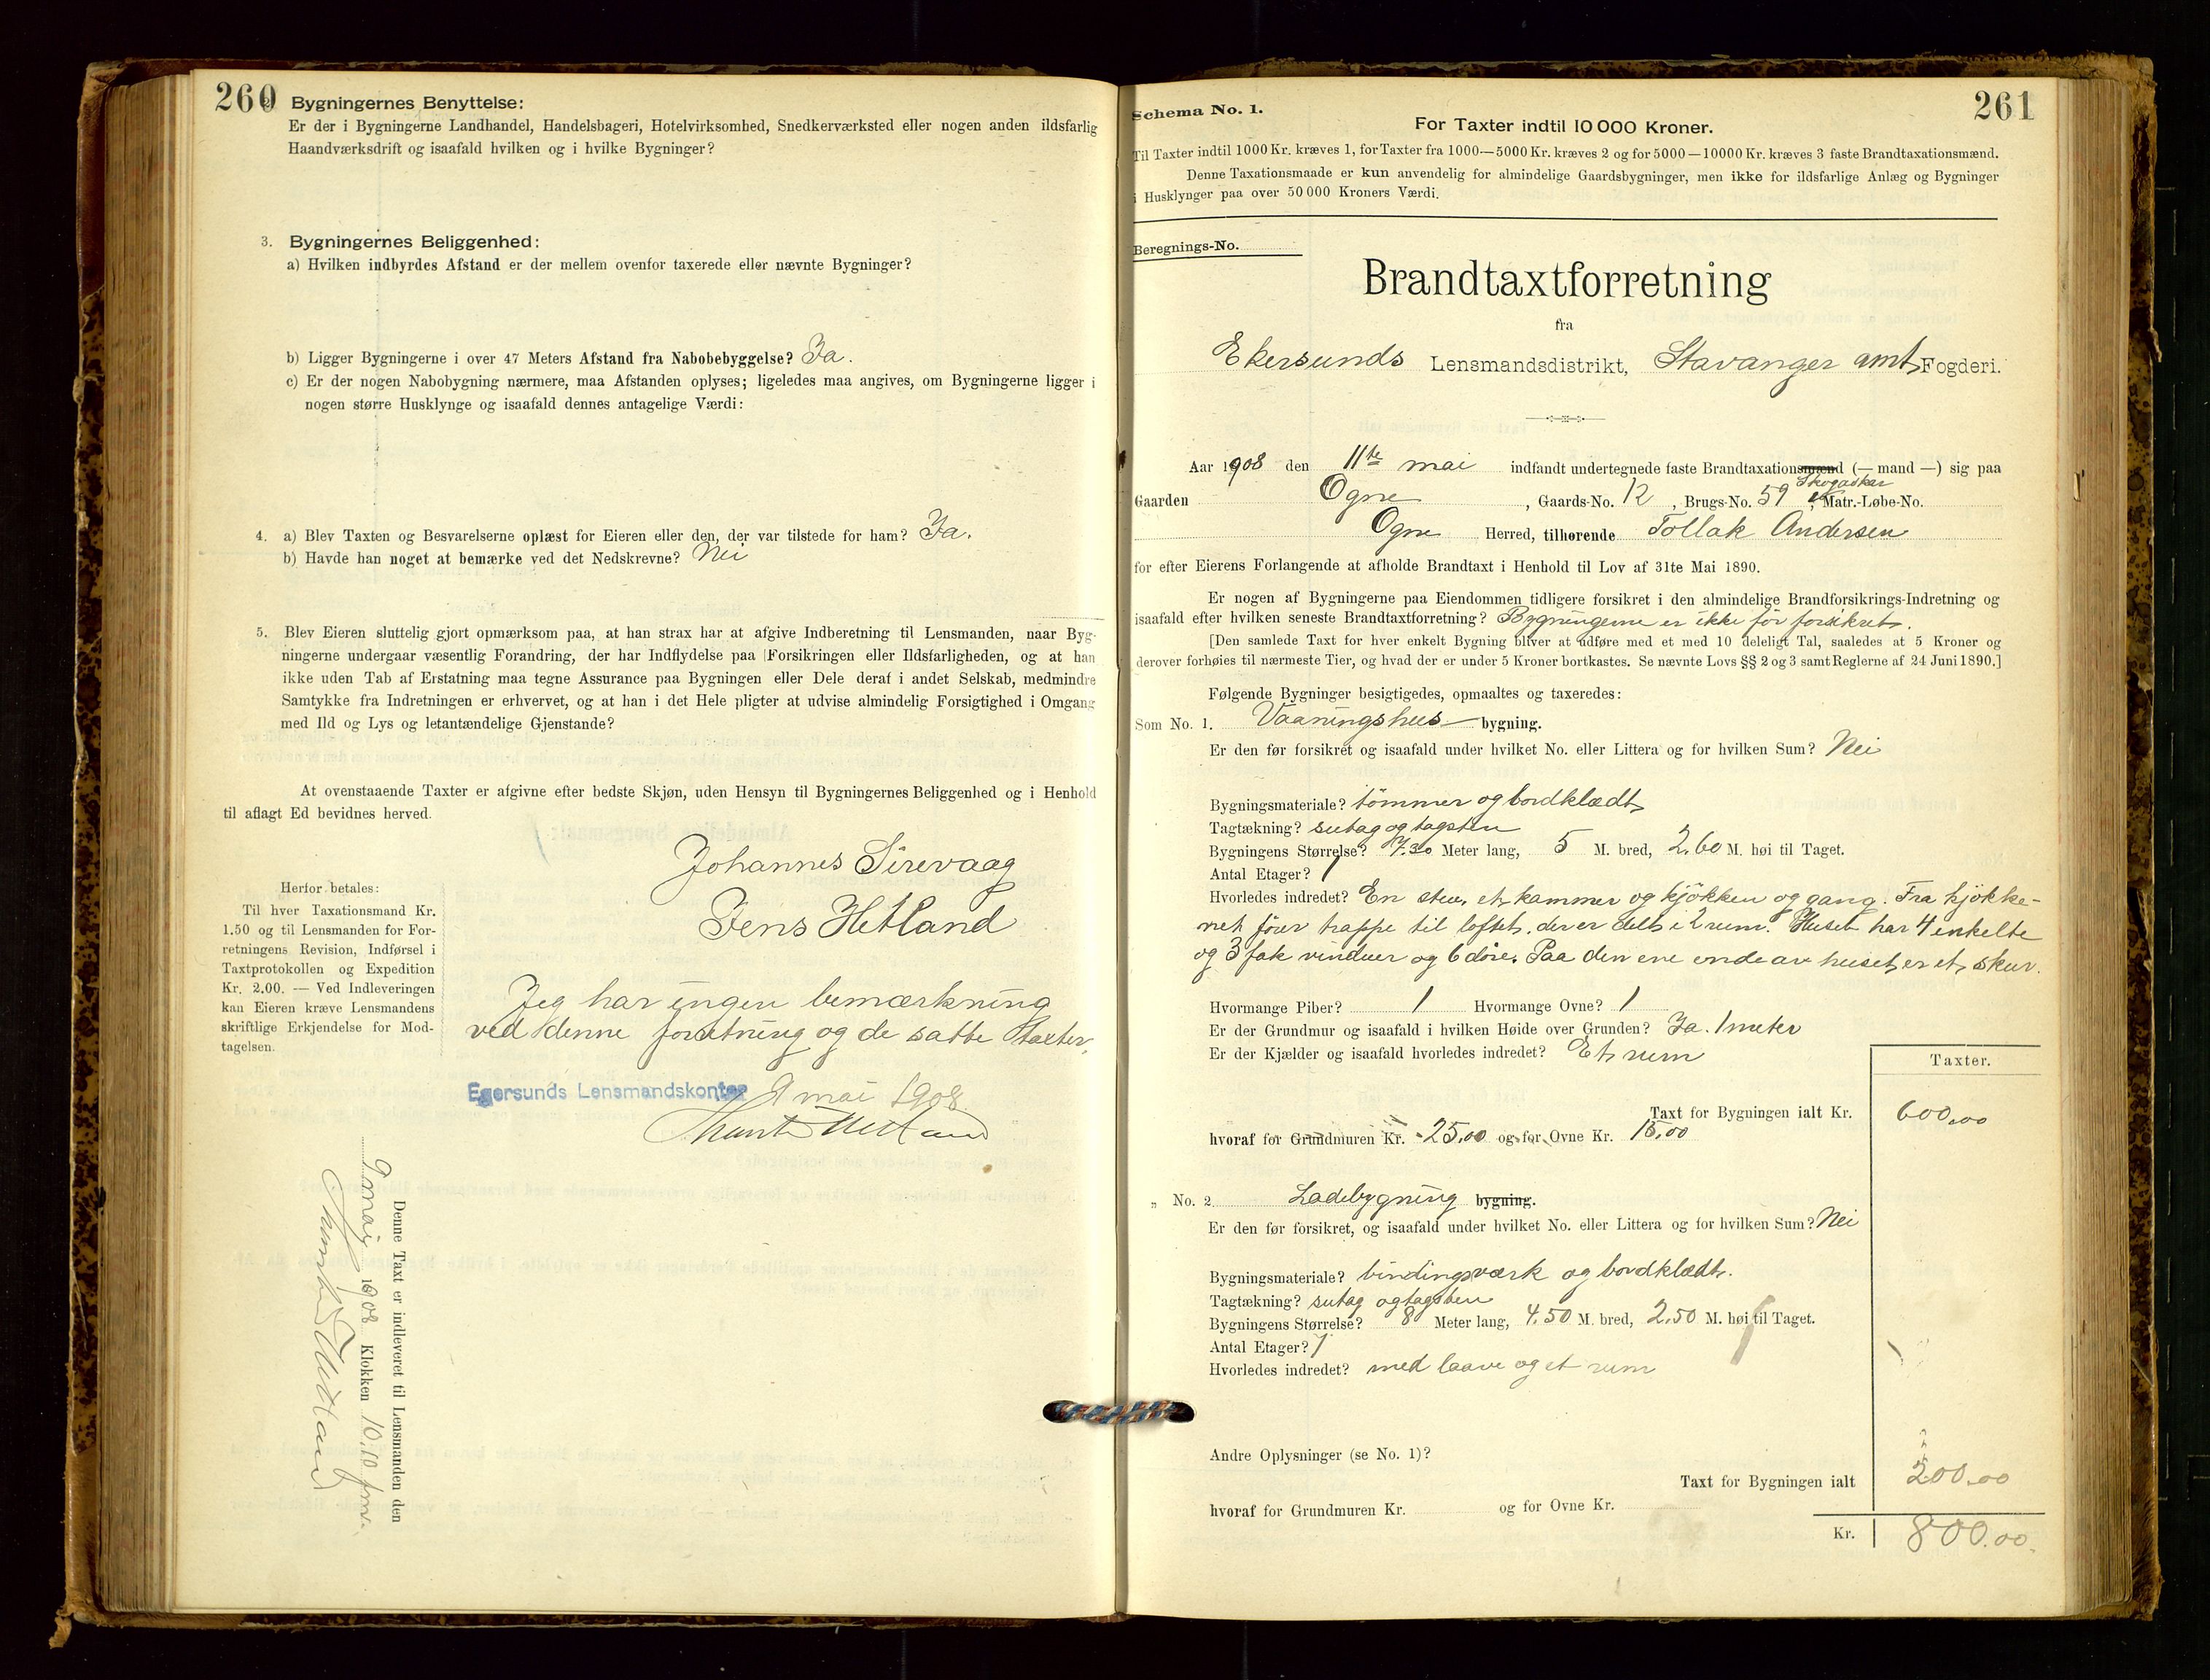 260
2. Bygningernes Benyttelse:
Er der i Bygningerne Landhandel, Handelsbageri, Hotelvirksomhed, Snedkerværksted eller nogen anden ildsfarlig
Haandværksdrift og isaafald hvilken og i hvilke Bygninger?
3. Bygningernes Beliggenhed:
a) Hvilken indbyrdes Afstand er der mellem ovenfor taxerede eller nævnte Bygninger?
b) Ligger Bygningerne i over 47 Meters Afstand fra Nabobebyggelse? Ja.
c) Er der nogen Nabobygning nærmere, maa Afstanden oplyses; ligeledes maa angives, om Bygningerne ligger i
nogen større Husklynge og isaafald dennes antagelige Værdi:
4. a) Blev Taxten og Besvarelserne oplæst for Eieren eller den, der var tilstede for ham? Ja.
b) Havde han noget at bemærke ved det Nedskrevne? Nei
5. Blev Eieren sluttelig gjort opmærksom paa, at han strax har at afgive Indberetning til Lensmanden, naar Byg-
ningerne undergaar væsentlig Forandring, der har Indflydelse paa Forsikringen eller Ildsfarligheden, og at han
ikke uden Tab af Erstatning maa tegne Assurance paa Bygningen eller Dele deraf i andet Selskab, medmindre
Samtykke fra Indretningen er erhvervet, og at han i det Hele pligter at udvise almindelig Forsigtighed i Omgang
med Ild og Lys og letantændelige Gjenstande?
At ovenstaaende Taxter er afgivne efter bedste Skjøn, uden Hensyn til Bygningernes Beliggenhed og i Henhold
til aflagt Ed bevidnes herved.
Johannes Sirevaag
Jens Hetland
Herfor betales:
Til hver Taxationsmand Kr.
1.50 og til Lensmanden for For-
retningens Revision, Indførsel i
Taxtprotokollen og Expedition
Kr. 2.00. — Ved Indleveringen
kan Eieren kræve Lensmandens
skriftlige Erkjendelse for Mod-
tagelsen.
Jeg har ingen bemærkning
ved denne forretning og de satte taxter.
Egersunds Lensmandskontor 9 mai 1908.
Denne Taxt er indleveret til Lensmanden den
9 mai 1908 Klokken 10.10 fm.
261
Schema No. 1.
For Taxter indtil 10 000 Kroner.
Til Taxter indtil 1000 Kr. kræves 1, for Taxter fra 1000—5000 Kr. kræves 2 og for 5000—10000 Kr. kræves 3 faste Brandtaxationsmænd.
Denne Taxationsmaade er kun anvendelig for almindelige Gaardsbygninger, men ikke for ildsfarlige Anlæg og Bygninger
i Husklynger paa over 50 000 Kroners Værdi.
Beregnings-No.
Brandtaxtforretning
fra
Ekersunds Lensmandsdistrikt, Stavanger amts Fogderi.
Aar 1908 den 11te mai indfandt undertegnede faste Brandtaxationsmænd (— mand —) sig paa
Gaarden Ogne, Gaards-No. 12, Brugs-No. 59 Skogaaker, Matr.-Løbe-No.
Ogne Herred, tilhørende Tollak Andersen
for efter Eierens Forlangende at afholde Brandtaxt i Henhold til Lov af 31te Mai 1890.
Er nogen af Bygningerne paa Eiendommen tidligere forsikret i den almindelige Brandforsikrings-Indretning og
isaafald efter hvilken seneste Brandtaxtforretning? Bygningerne er ikke før forsikret.
[Den samlede Taxt for hver enkelt Bygning bliver at udføre med et med 10 deleligt Tal, saaledes at 5 Kroner og
derover forhøies til nærmeste Tier, og hvad der er under 5 Kroner bortkastes. Se nævnte Lovs §§ 2 og 3 samt Reglerne af 24 Juni 1890.]
Følgende Bygninger besigtigedes, opmaaltes og taxeredes:
Som No. 1. Vaaningshus bygning.
Er den før forsikret og isaafald under hvilket No. eller Littera og for hvilken Sum? Nei
Bygningsmateriale? tømmer og bordklædt
Tagtækning? sutag og tagsten
Bygningens Størrelse? 7.30 Meter lang, 5 M. bred, 2.60 M. høi til Taget.
Antal Etager? 1
Hvorledes indredet? En stue, et kammer og kjøkken og gang. Fra kjøkke-
net fører trappe til loftet, der er delt i 2 rum. Huset har 4 enkelte
og 3 fak vinduer og 6 døre. Paa den ene ende av huset er et skur.
Hvormange Piber? 1 Hvormange Ovne? 1
Er der Grundmur og isaafald i hvilken Høide over Grunden? Ja. 1 meter
Er der Kjælder og isaafald hvorledes indredet? Et rum
Taxter.
Taxt for Bygningen ialt Kr. 600.00
hvoraf for Grundmuren Kr. 25.00 og for Ovne Kr. 15.00
„ No. 2 Ladebygning bygning.
Er den før forsikret, og isaafald under hvilket No. eller Littera og for hvilken Sum? Nei
Bygningsmateriale? bindingsværk og bordklædt.
Tagtækning? sutag og tagsten
Bygningens Størrelse? 8 Meter lang, 4.50 M. bred, 2.50 M. høi til Taget.
Antal Etager? 1
Hvorledes indredet? med laave og et rum
Andre Oplysninger (se No. 1)?
Taxt for Bygningen ialt 200.00
hvoraf for Grundmuren Kr. og for Ovne Kr.
Kr. 800.00.